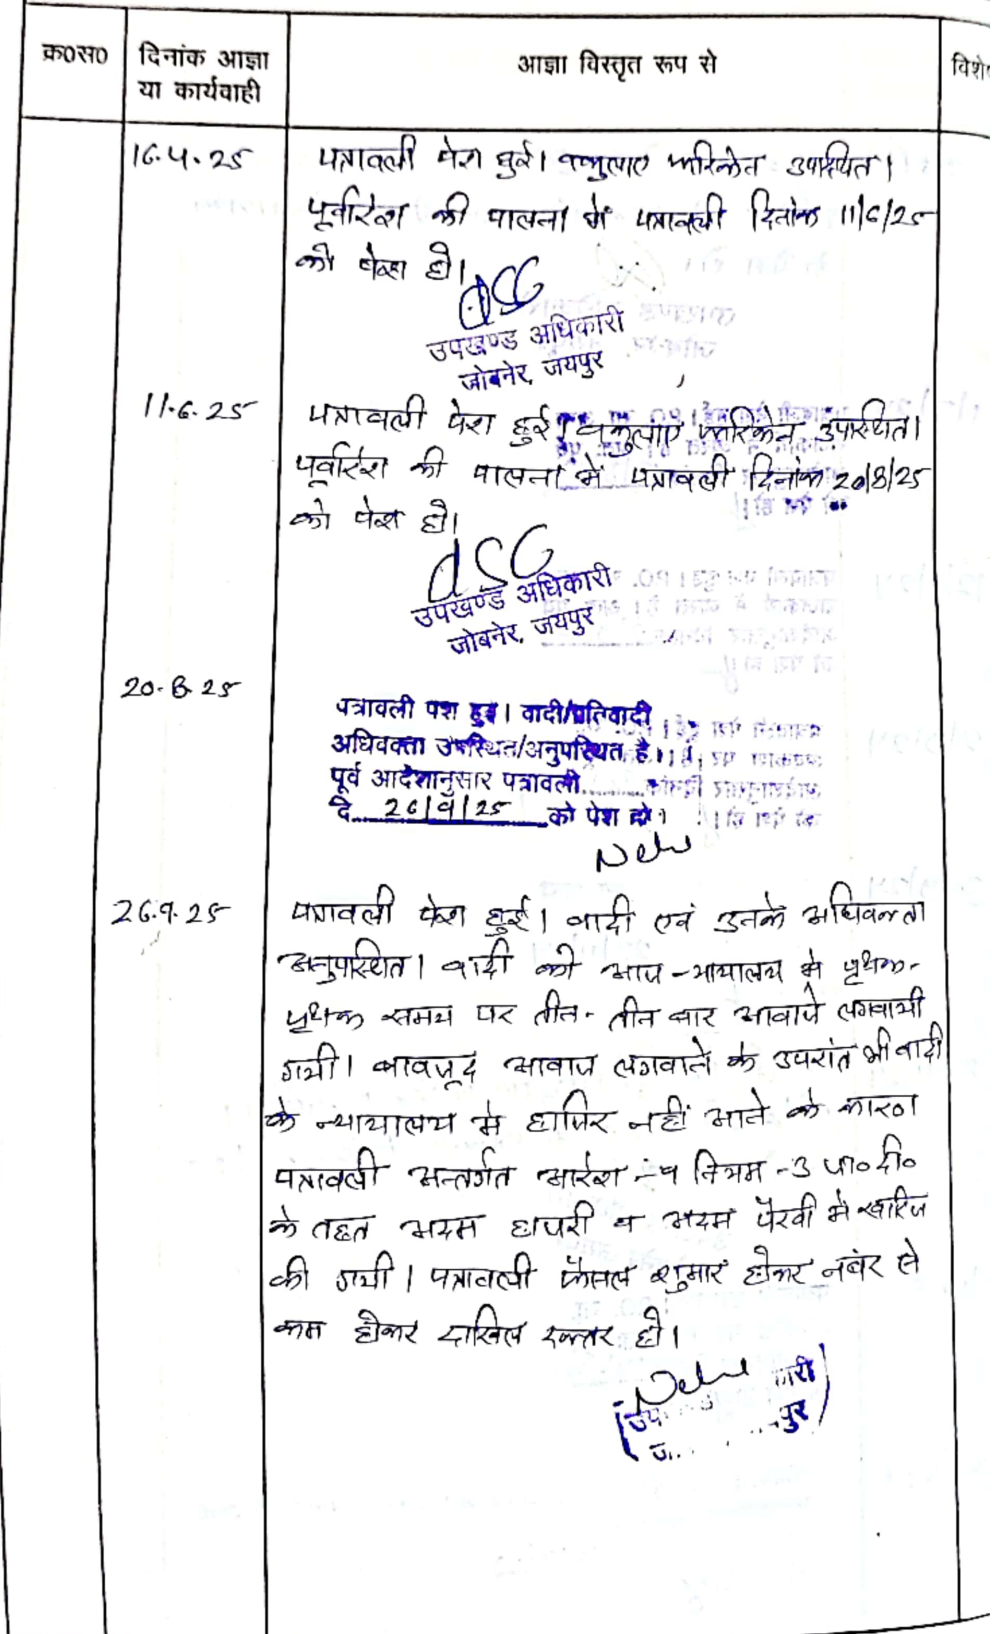 क्र०स०
दिनांक आज्ञा
या कार्यवाही
आज्ञा विस्तृत रूप से
विशे
16.4.25
पत्रावली पेश हुई। वकुलाए फरिकेन उपस्थित।
पूर्वादेश की पालना में पत्रावली दिनांक 11/6/25
को पेश हो।
उपखण्ड अधिकारी
जोबनेर, जयपुर
11.6.25
पत्रावली पेश हुई। वकुलाए फरिकेन उपस्थित।
पूर्वादेश की पालना में पत्रावली दिनांक 20/8/25
को पेश हो।
उपखण्ड अधिकारी
जोबनेर, जयपुर
20.8.25
पत्रावली पेश हुई। वादी/प्रतिवादी
अधिवक्ता उपस्थित/अनुपस्थित है।
पूर्व आदेशानुसार पत्रावली.........
दि....26/9/25....को पेश हो।
26.9.25
पत्रावली पेश हुई। वादी एवं उनके अधिवक्ता
अनुपस्थित। वादी को आज न्यायालय मे पृथक-
पृथक समय पर तीन-तीन बार आवाजे लगवायी
गयी। बावजूद आवाज लगवाने के उपरांत भी वादी
के न्यायालय मे हाजिर नहीं आने के कारण
पत्रावली अन्तर्गत आदेश-9 नियम-3 जा०दी०
के तहत अदम हाजरी व अदम पैरवी मे खारिज
की गयी। पत्रावली फैसल शुमार होकर नंबर से
कम होकर दाखिल दफ्तर हो।